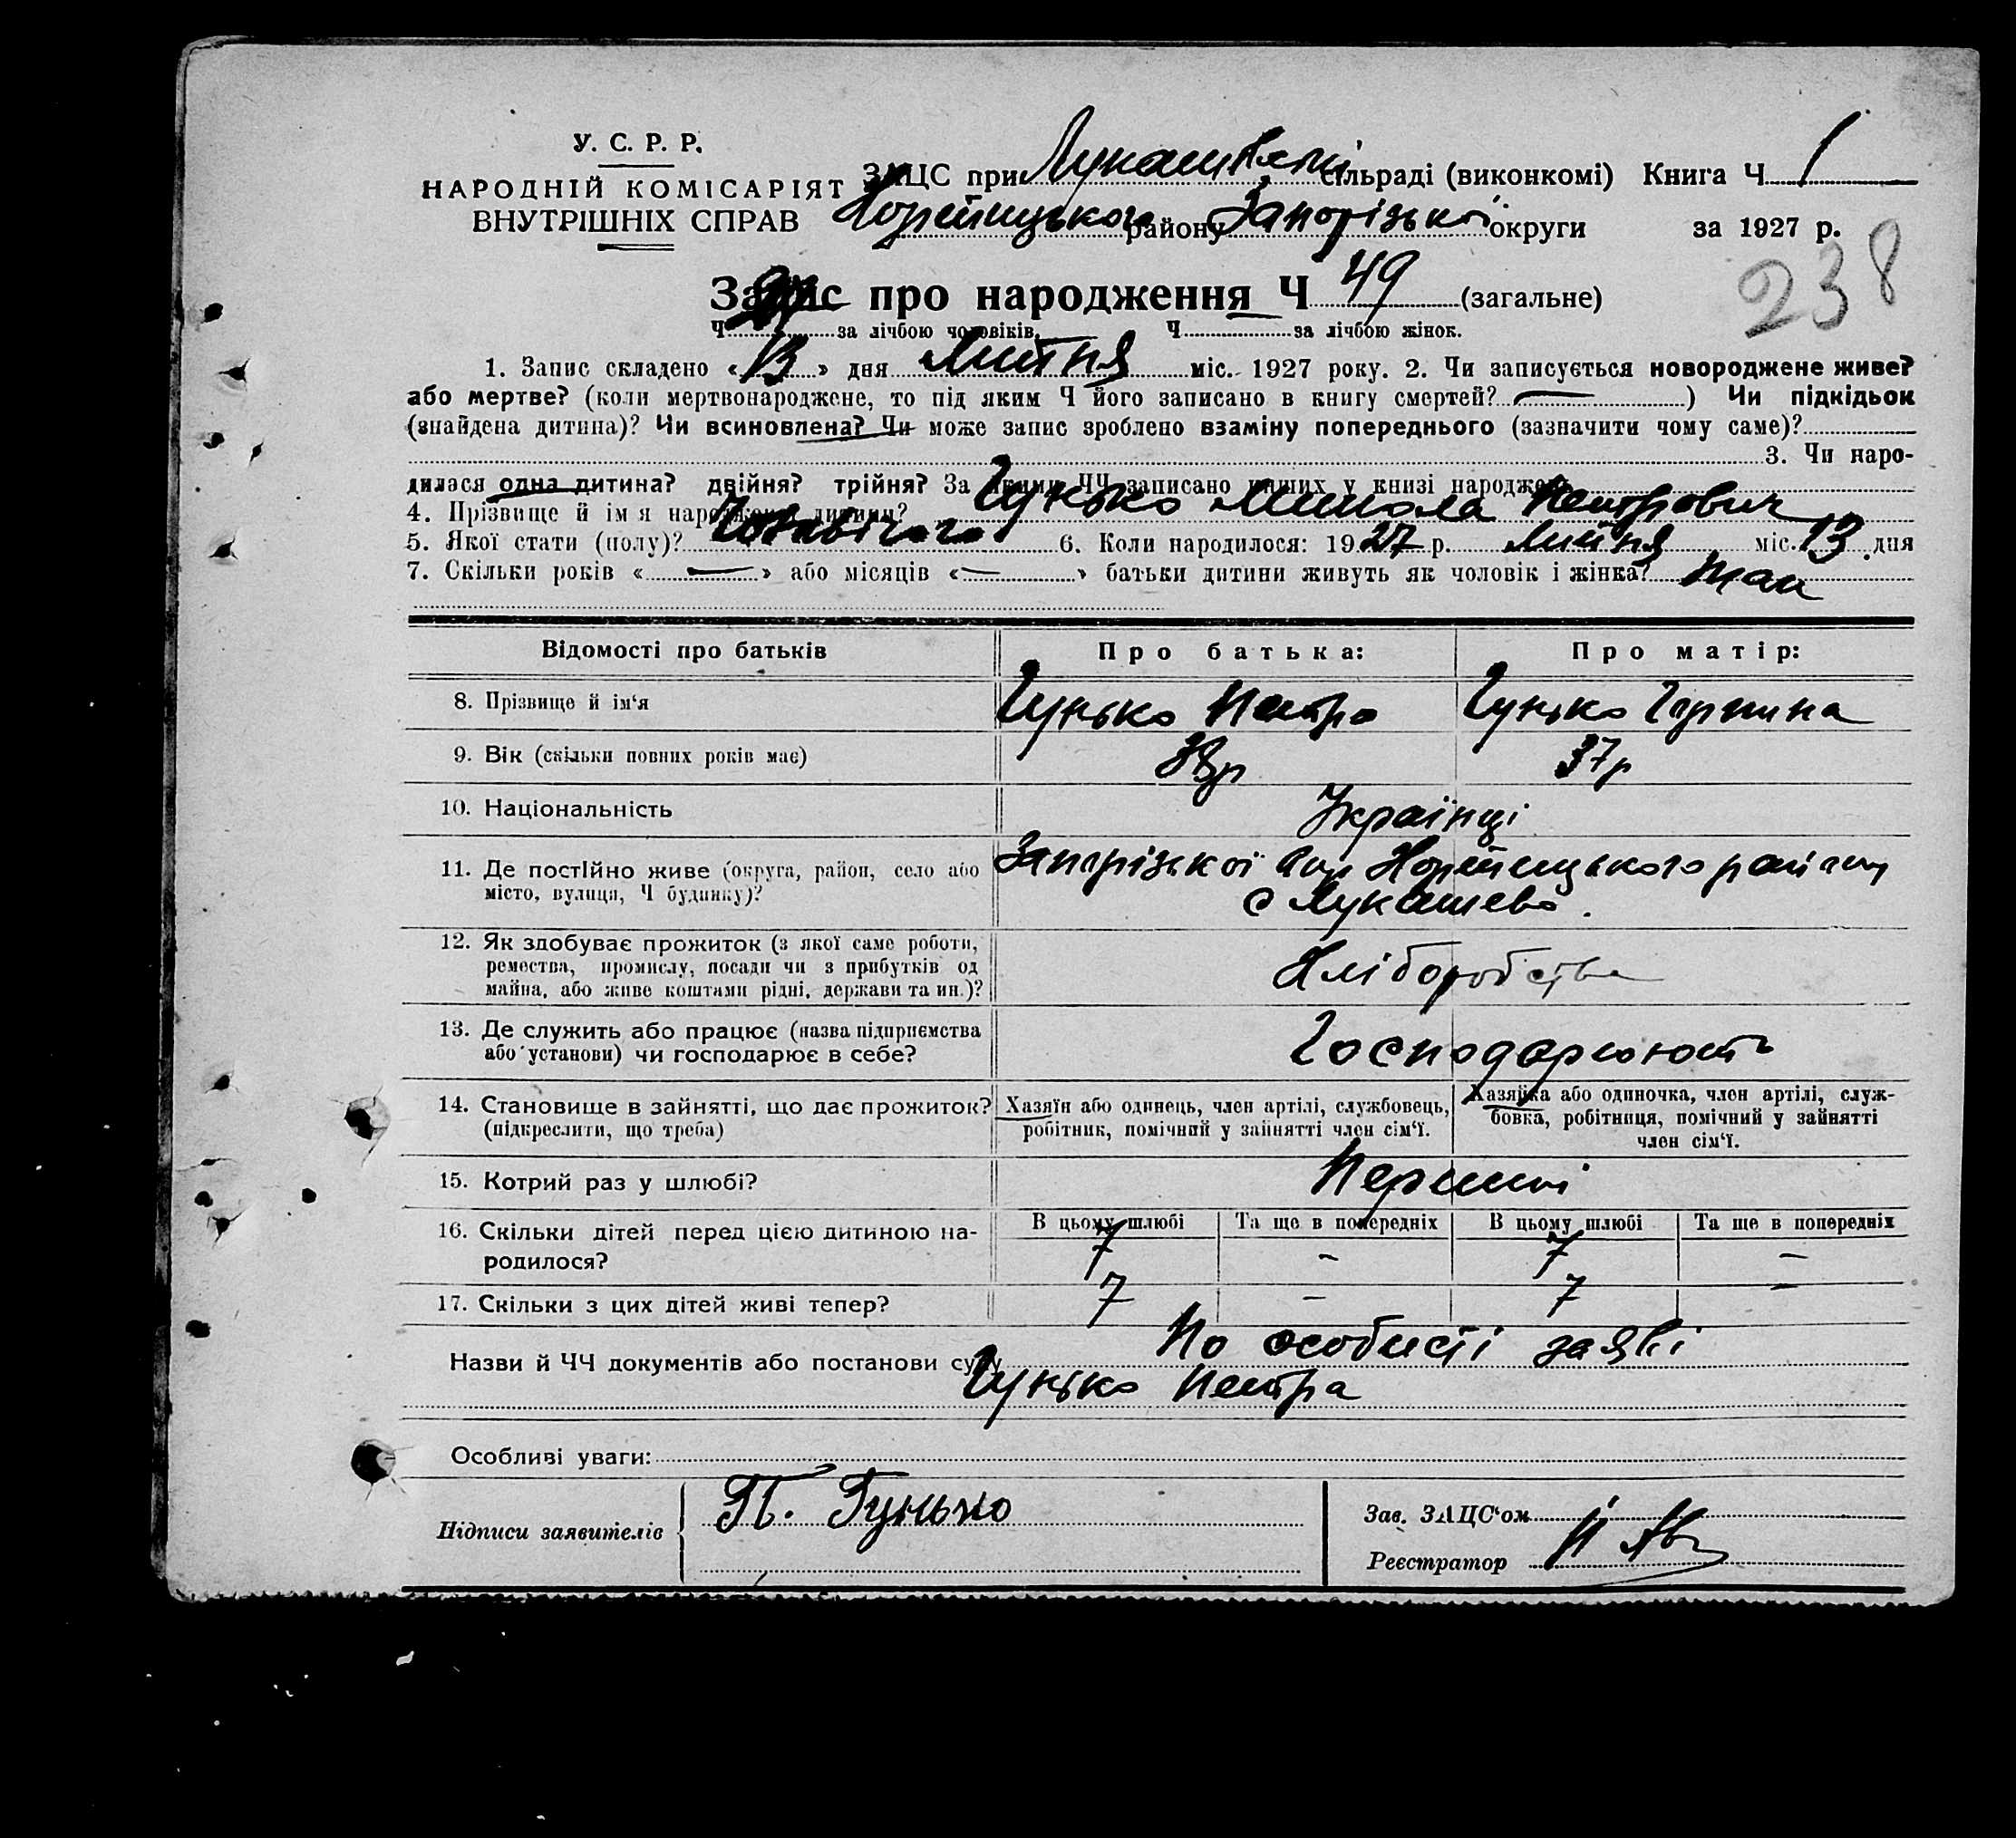 У. С. Р. Р.
НАРОДНІЙ КОМІСАРІЯТ
ВНУТРІШНІХ СПРАВ
ЗАЦС при Лукашівській сільраді (виконкомі) Книга Ч 1
Хортицького району Запорізької округи за 1927 р.
238
Запис про народження Ч 49 (загальне)
Ч за лічбою чоловіків. Ч за лічбою жінок.
1. Запис складено «13» дня Липня міс. 1927 року. 2. Чи записується новороджене живе?
або мертве? (коли мертвонароджене, то під яким Ч його записано в книгу смертей? —) Чи підкідьок
(знайдена дитина)? Чи всиновлена? Чи може запис зроблено взаміну попереднього (зазначити чому саме)?
3. Чи наро-
дилася одна дитина? двійня? трійня? За якими ЧЧ записано инших у книзі народжень
4. Прізвище й ім'я народженої дитини? Гунько Микола Петрович
5. Якої стати (полу)? Чоловічого 6. Коли народилося: 1927 р. Липня міс. 13 дня
7. Скільки років «—» або місяців «—» батьки дитини живуть як чоловік і жінка?
Відомості про батьків Про батька: Про матір:
8. Прізвище й ім'я Гунько Петро Гунько
9. Вік (скільки повних років має) 38р 37р
10. Національність Українці
11. Де постійно живе (округа, район, село або
місто, вулиця, Ч будинку)? Запорізької окр Хортицького району
с Лукашево.
12. Як здобуває прожиток (з якої саме роботи,
ремества, промислу, посади чи з прибутків од
майна, або живе коштами рідні, держави та ин.)? Хліборобство
13. Де служить або працює (назва підприємства
або установи) чи господарює в себе? Господарюють
14. Становище в зайнятті, що дає прожиток?
(підкреслити, що треба)
Хазяїн або одинець, член артілі, службовець,
робітник, помічний у зайнятті член сім'ї.
Хазяйка або одиночка, член артілі, служ-
бовка, робітниця, помічний у зайнятті
член сім'ї.
15. Котрий раз у шлюбі? Перший
16. Скільки дітей перед цією дитиною на-
родилося?
В цьому шлюбі Та ще в попередніх В цьому шлюбі Та ще в попередніх
7 – 7 –
17. Скільки з цих дітей живі тепер? 7 – 7 –
Назви й ЧЧ документів або постанови суду По особисті заяві
Гунько Петра
Особливі уваги:
Підписи заявителів П. Гунько
Зав. ЗАЦС'ом
Реєстратор